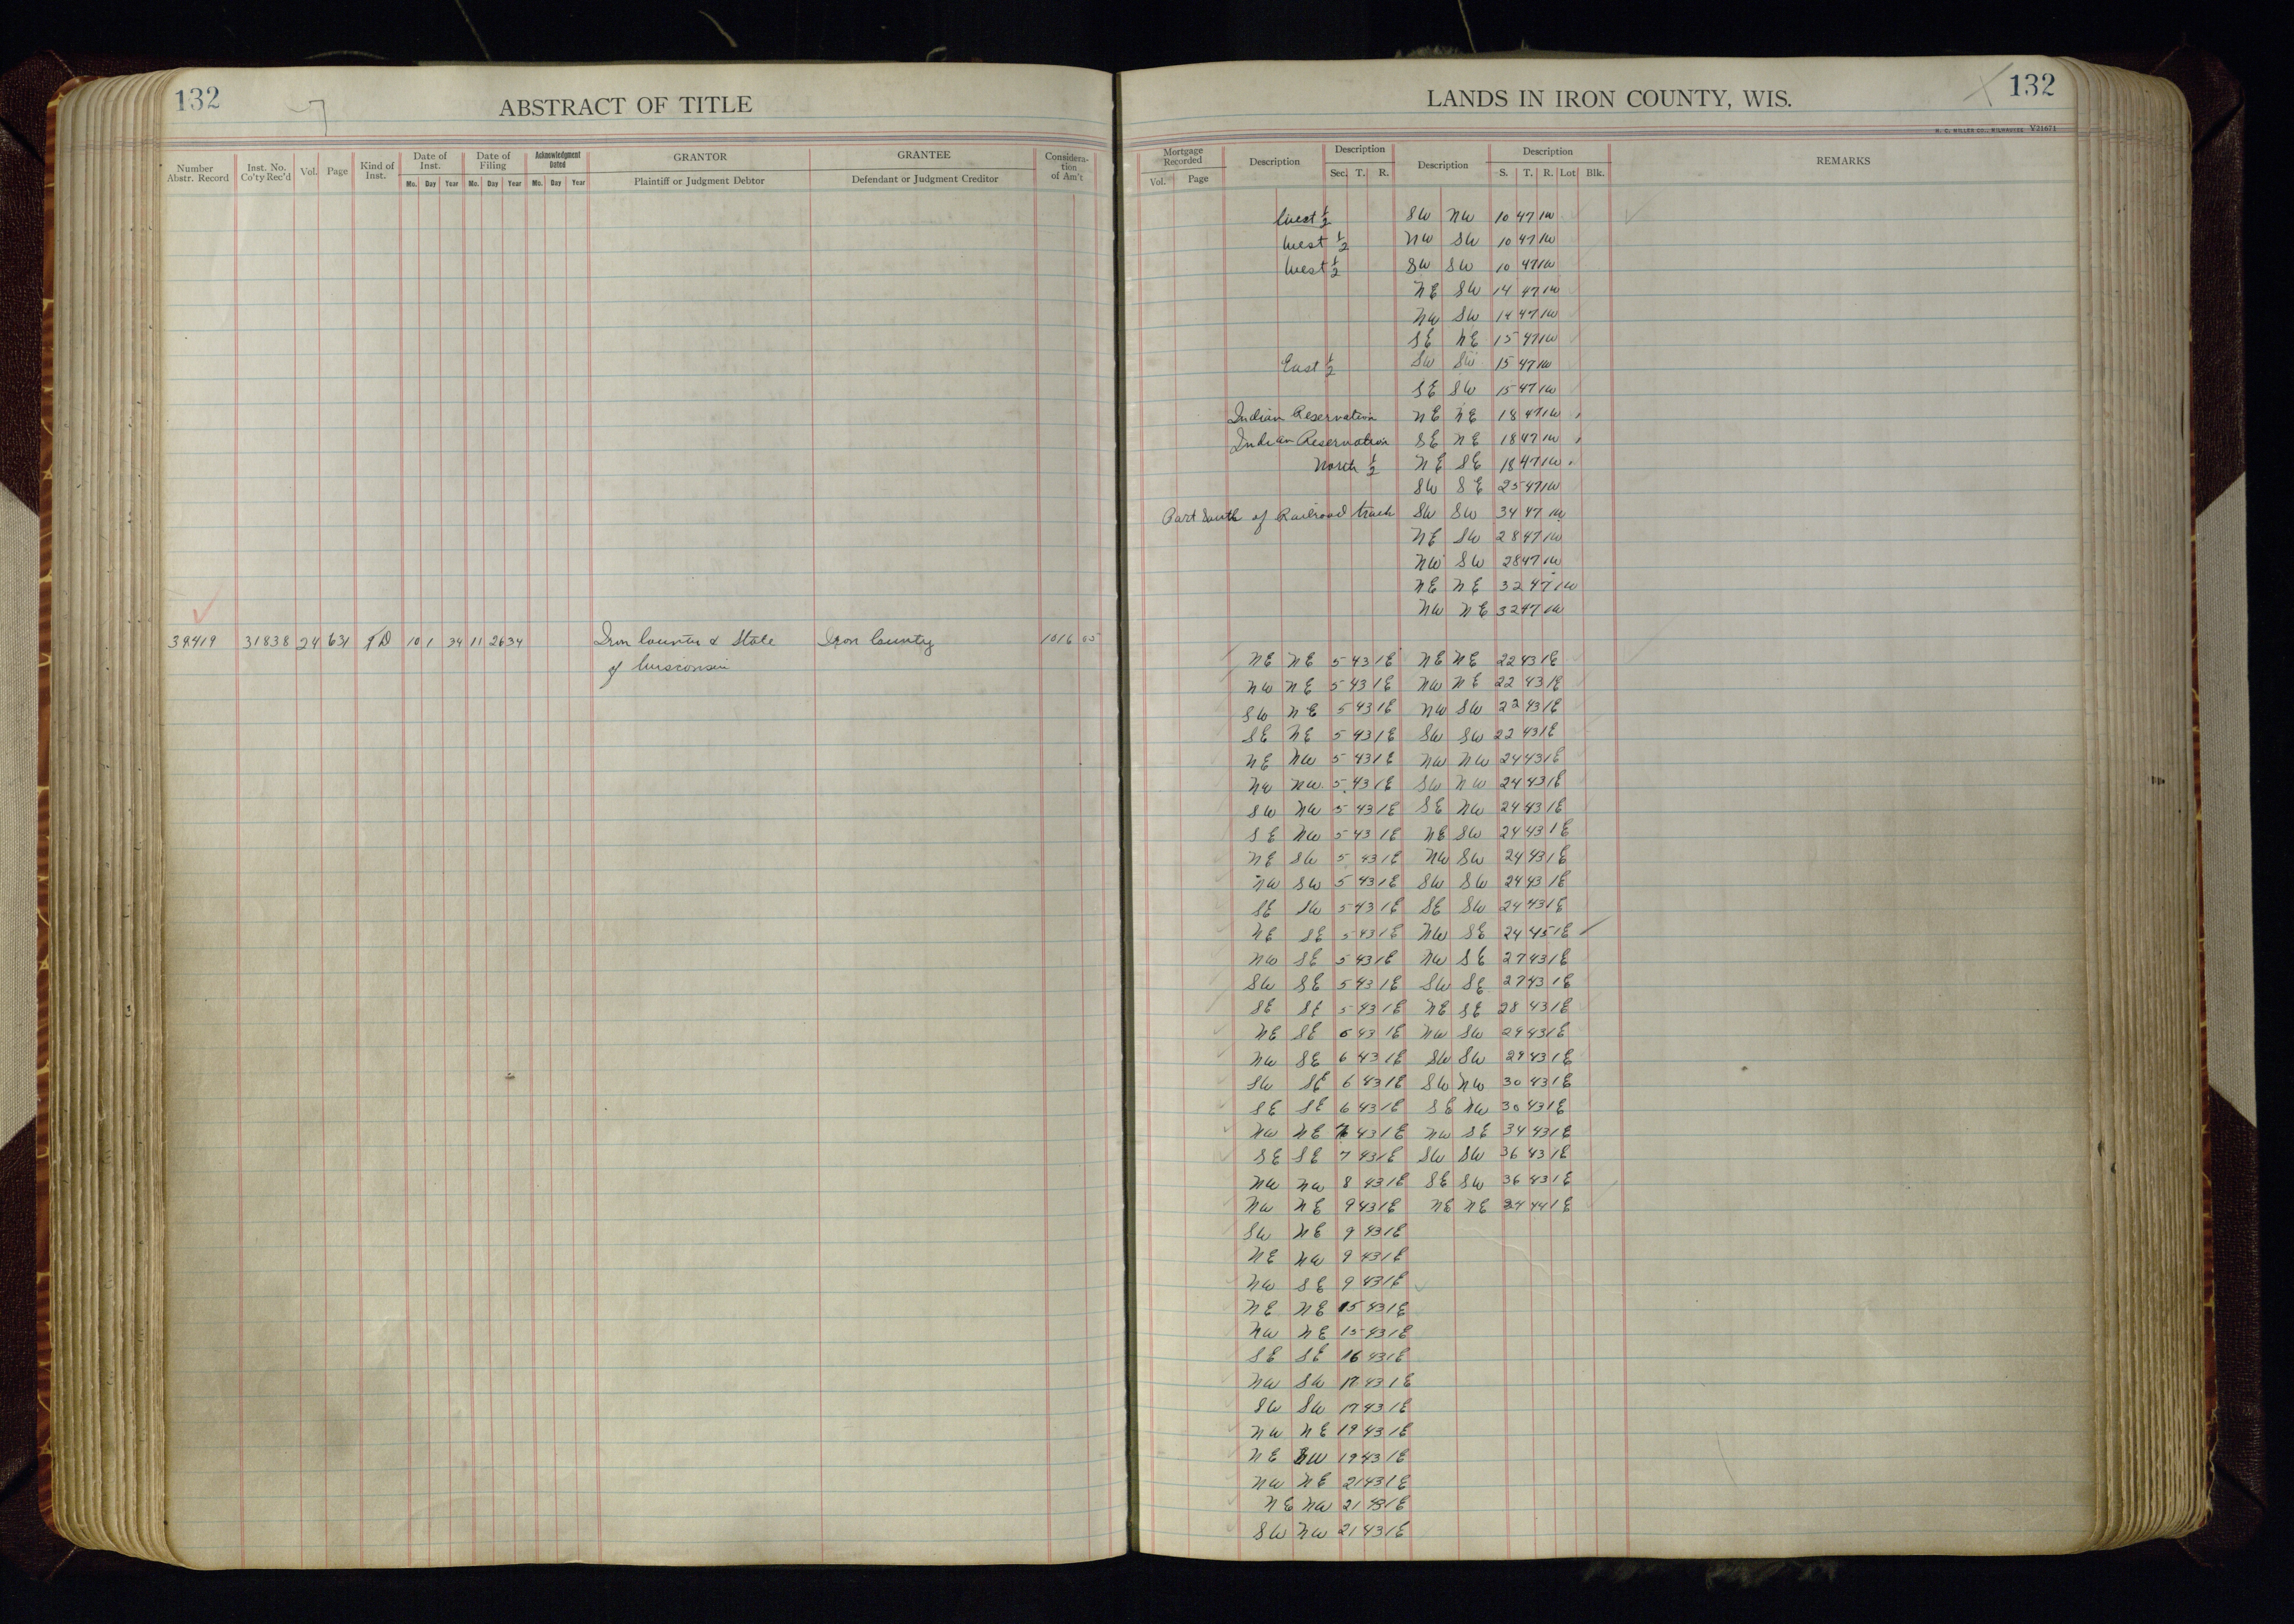 132
ABSTRACT OF TITLE
Number Abstr. Record
Inst. No. Co'ty Rec'd
Vol.
Page
Kind of Inst.
Date of Inst.
Mo. Day Year
Date of Filing
Mo. Day Year
Acknowledgment Dated
Mo. Day Year
GRANTOR
Plaintiff or Judgment Debtor
GRANTEE
Defendant or Judgment Creditor
Considera-tion of Am't
39419 31838 24 631 TD 10 1 34 11 26 34 Iron County & State Iron County 1016 05
of Wisconsin
LANDS IN IRON COUNTY, WIS.
132
H. C. MILLER CO., MILWAUKEE V21671
Mortgage Recorded
Vol. Page
Description
Description
Sec. T. R.
Description
Description
S. T. R. Lot Blk.
REMARKS
West 1/2 SW NW 10 47 1W
West 1/2 NW SW 10 47 1W
West 1/2 SW SW 10 47 1W
NE SW 14 47 1W
NW SW 14 47 1W
SE NE 15 47 1W
East 1/2 SW SW 15 47 1W
SE SW 15 47 1W
Indian Reservation NE NE 18 47 1W
Indian Reservation SE NE 18 47 1W
North 1/2 NE SE 18 47 1W
SW SE 25 47 1W
Part South of Railroad track SW SW 34 47 1W
NE SW 28 47 1W
NW SW 28 47 1W
NE NE 32 47 1W
NW NE 32 47 1W
NE NE 5 43 1E NE NE 22 43 1E
NW NE 5 43 1E NW NE 22 43 1E
SW NE 5 43 1E NW SW 22 43 1E
SE NE 5 43 1E SW SW 22 43 1E
NE NW 5 43 1E NW NW 24 43 1E
NW NW 5 43 1E SW NW 24 43 1E
SW NW 5 43 1E SE NW 24 43 1E
SE NW 5 43 1E NE SW 24 43 1E
NE SW 5 43 1E NW SW 24 43 1E
NW SW 5 43 1E SW SW 24 43 1E
SE SW 5 43 1E SE SW 24 43 1E
NE SE 5 43 1E NW SE 24 45 1E
NW SE 5 43 1E NW SE 27 43 1E
SW SE 5 43 1E SW SE 27 43 1E
SE SE 5 43 1E NE SE 28 43 1E
NE SE 6 43 1E NW SW 29 43 1E
NW SE 6 43 1E SW SW 29 43 1E
SW SE 6 43 1E SW NW 30 43 1E
SE SE 6 43 1E SE NW 30 43 1E
NW NE 7 43 1E NW SE 34 43 1E
SE SE 7 43 1E SW SW 36 43 1E
NW NW 8 43 1E SE SW 36 43 1E
NW NE 9 43 1E NE NE 24 44 1E
SW NE 9 43 1E
NE NW 9 43 1E
NW SE 9 43 1E
NE NE 15 43 1E
NW NE 15 43 1E
SE SE 16 43 1E
NW SW 17 43 1E
SW SW 17 43 1E
NW NE 19 43 1E
NE NW 19 43 1E
NW NE 21 43 1E
NE NW 21 43 1E
SW NW 21 43 1E